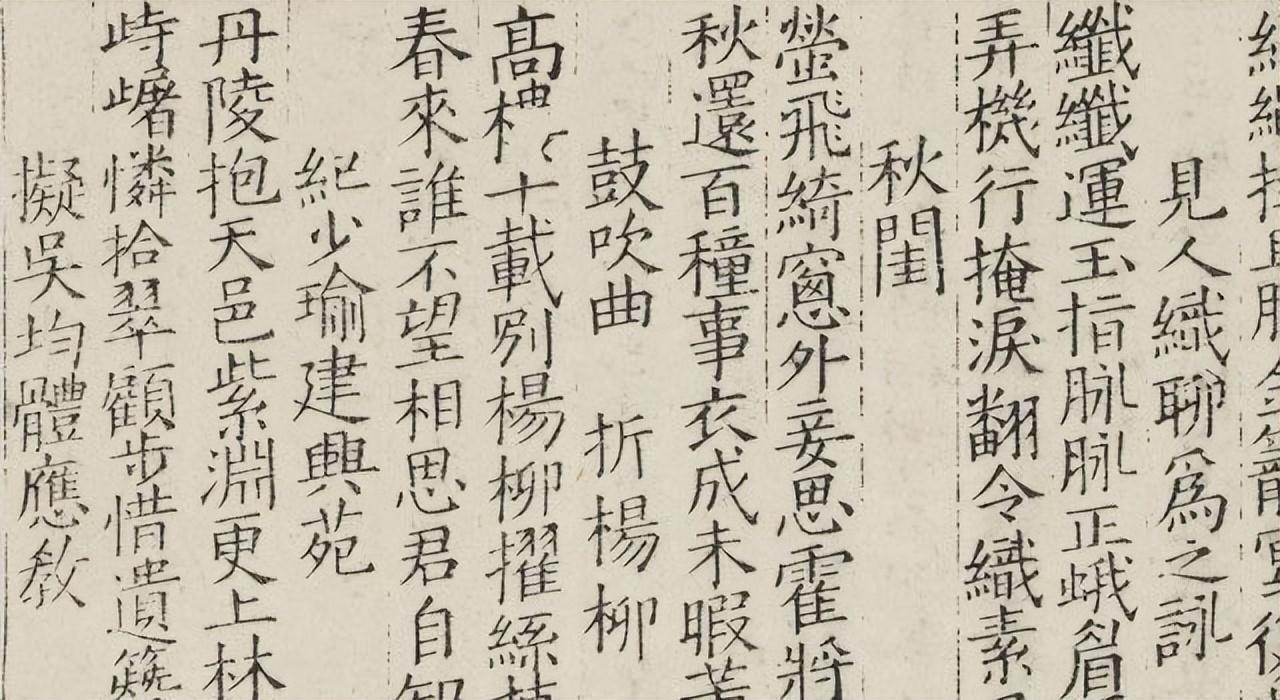 見人織聊爲之詠
纖纖運玉指脉脉正蛾眉
弄機行掩淚翻令織素
秋閨
螢飛綺窻外妾思霍將
秋還百種事衣成未暇
鼓吹曲 折楊柳
高十載別楊柳擢絲
春來誰不望相思君自知
紀少瑜建興苑
丹陵抱天邑紫淵更上林
峙憐拾翠顧步惜遺簪
擬吳均體應教